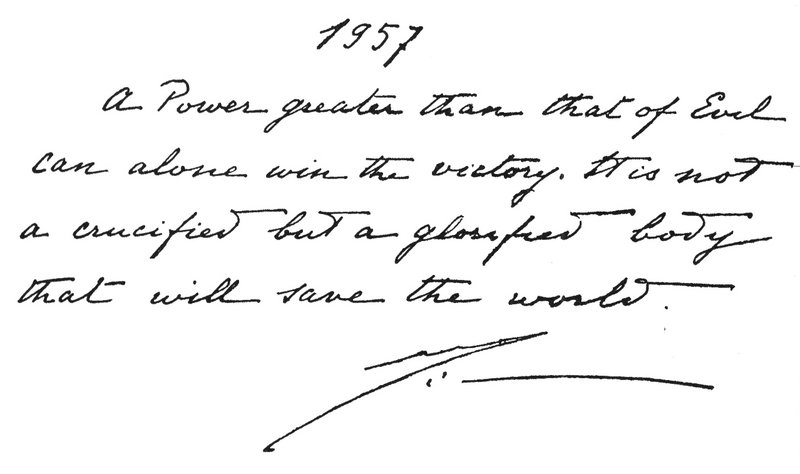 1957
A Power greater than that of Evil
can alone win the victory. It is not
a crucified but a glorified body
that will save the world.